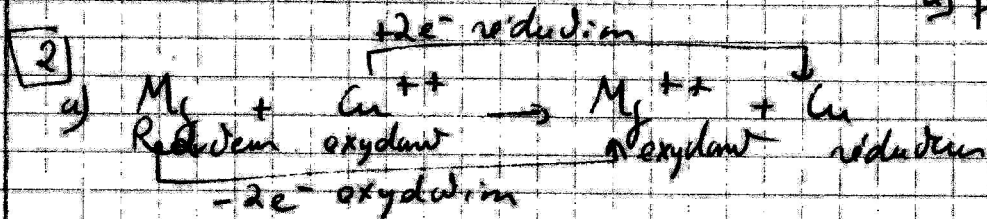 +2e⁻ réduction
2
a) Mg + Cu⁺⁺ → Mg⁺⁺ + Cu
Réducteur oxydant oxydant réducteur
-2e⁻ oxydation